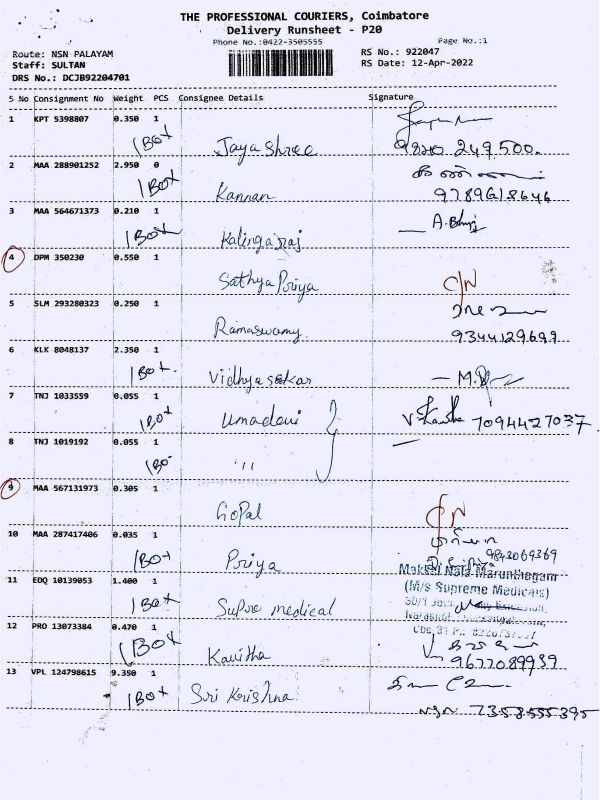 THE PROFESSIONAL COURIERS, Coimbatore
Delivery Runsheet - P20
Phone No.:0422-3505555 Page No.:1
Route: NSN PALAYAM RS No.: 922047
Staff: SULTAN RS Date: 12-Apr-2022
DRS No.: DCJB92204701
S No Consignment No Weight PCS Consignee Details Signature
1 KPT 5398807 0.350 1
1 Box Jaya shree
2 MAA 288901252 2.950 0
1 Box Kannan 9789618646
3 MAA 564671373 0.210 1
1 Box Kalingaraj
4 DPM 350230 0.550 1
Sathya Priya C/N
5 SLM 293280323 0.250 1
Ramaswamy 9344129699
6 KLK 8048137 2.350 1
1 Box Vidhyasekar
7 TNJ 1033559 0.055 1
1 Box Umadevi 7094427037
8 TNJ 1019192 0.055 1
1 Bo ,,
9 MAA 567131973 0.305 1
Gopal C/N
10 MAA 287417406 0.035 1
1 Box Priya 9843069369
Makkal Nala Marunthagam
11 EDQ 10139053 1.400 1
(M/s Supreme Medicals)
1 Box Supre medical
12 PRO 13073384 0.470 1
1 Box Kavitha 9677089939
13 VPL 124798615 9.350 1
1 Box Sri Krishna
7358555395